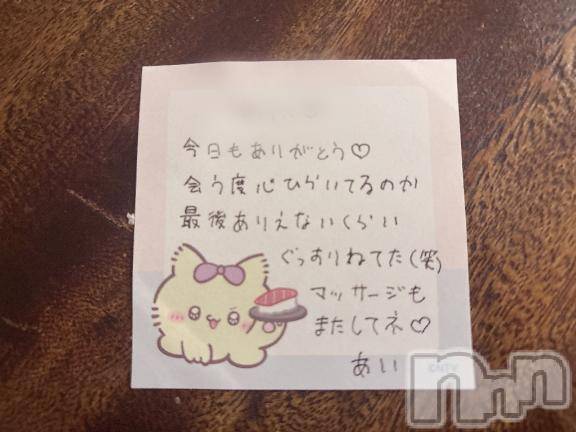 今日もありがとう♡
会う度心ひらいてるのか
最後ありえないくらい
ぐっすりねてた(笑)
マッサージも
またしてネ♡
あい
©NTV
nnn